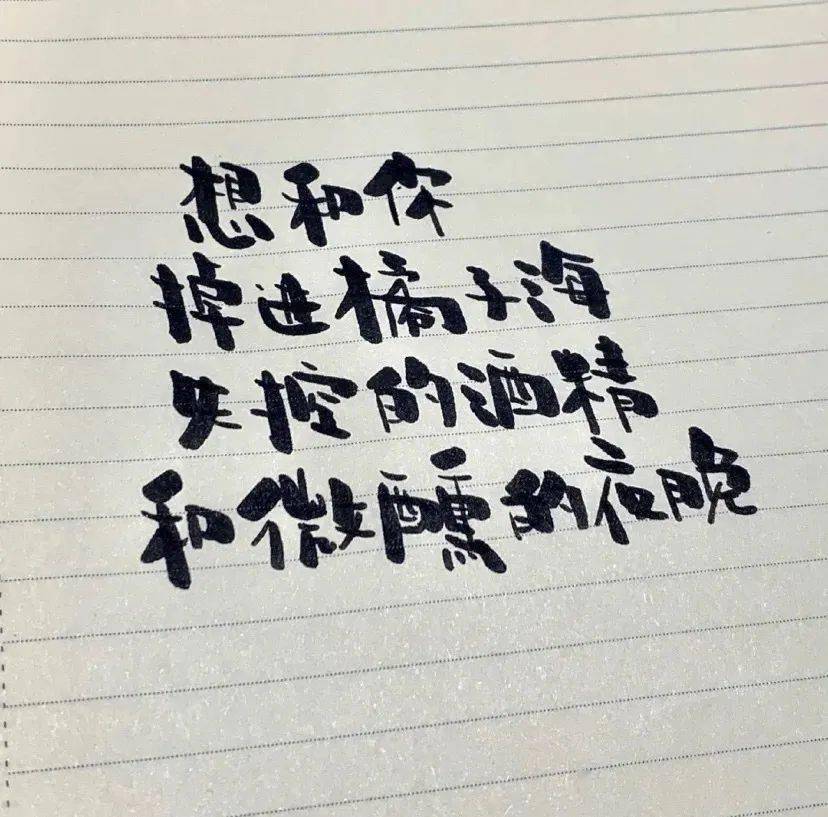 想和你
掉进橘子海
失控的酒精
和微醺的夜晚